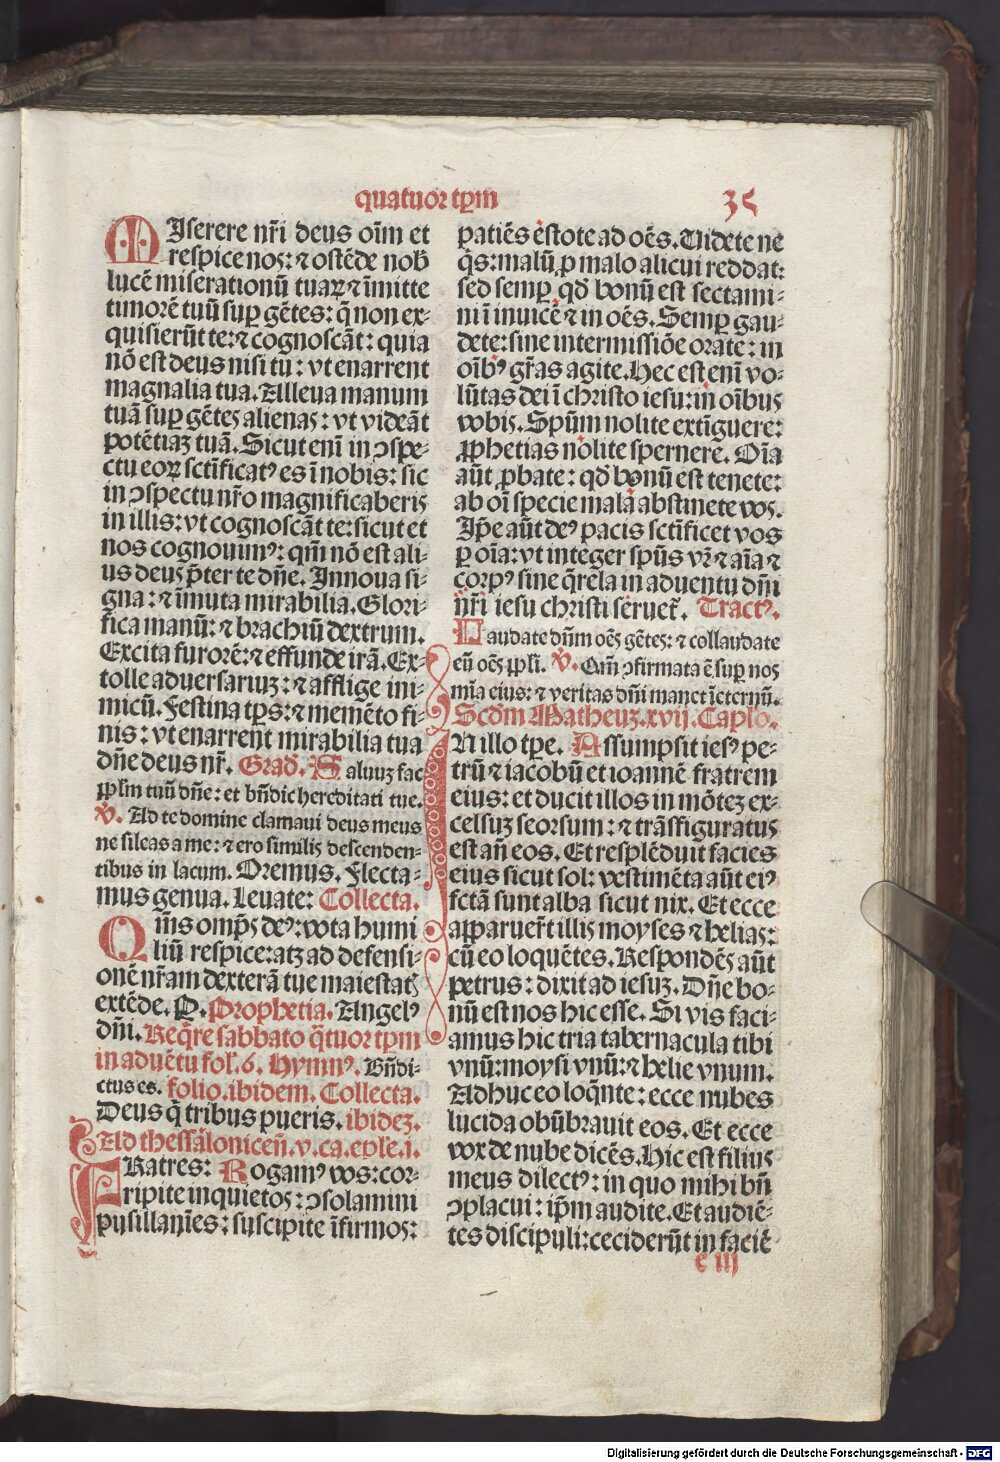 quatuor tp̄m
35
MIserere nr̄i deus oīm et
respice nos: ⁊ ostēde nob̄
lucē miserationū tuaꝝ ⁊ īmitte
timorē tuū suꝑ gētes: q̄ non ex-
quisierūt te: ⁊ cognoscāt: quia
nō est deus nisi tu: vt enarrent
magnalia tua. Alleua manum
tuā suꝑ gētes alienas: vt videāt
potētiaꝫ tuā. Sicut enī in ꝯspe-
ctu eoꝝ sctīficatꝰ es ī nobis: sic
in ꝯspectu nr̄o magnificaberis
in illis: vt cognoscāt te: sicut et
nos cognouimꝰ: qm̄ nō est ali-
us deus p̄ter te dn̄e. Innoua si-
gna: ⁊ īmuta mirabilia. Glori-
fica manū: ⁊ brachiū dextrum.
Excita furorē: ⁊ effunde irā. Ex-
tolle aduersariuꝫ: ⁊ afflige ini-
micū. Festina tp̄s: ⁊ memēto fi-
nis: vt enarrent mirabilia tua
dn̄e deus nr̄. Grad. Saluuꝫ fac
pp̄lm tuū dn̄e: et bn̄dic hereditati tue.
V̄. Ad te domine clamaui deus meus
ne sileas a me: ⁊ ero similis descenden-
tibus in lacum. Oremus. Flecta-
mus genua. Leuate: Collecta.
QUm̄s omp̄s deꝰ: vota humi
liū respice: atꝫ ad defensi-
onē nr̄am dexterā tue maiestatꝭ
extēde. P. Prophetia. Angelꝰ
dn̄i. Req̄re sabbato q̄tuor tp̄m
in aduētu fol. 6. Hymnꝰ. Bn̄di-
ctus es. folio. ibidem. Collecta.
Deus q̄ tribus pueris. ibideꝫ.
Ad thessalonicen̄. v. ca. ep̄le. i.
FRatres: Rogamꝰ vos: cor-
ripite inquietos: ꝯsolamini
pusillanīes: suscipite īfirmos:
patiēs estote ad oēs. Uidete ne
q̄s: malū ꝓ malo alicui reddat:
sed semꝑ qd̄ bonū est sectami-
ni ī inuicē ⁊ in oēs. Semꝑ gau-
dete: sine intermissiōe orate: in
oībꝰ gr̄as agite. Hec est enī vo-
lūtas dei ī christo iesu: in oībus
vobis. Spūm nolite extīguere:
ꝓphetias nolite spernere. Oīa
aūt ꝓbate: qd̄ bonū est tenete:
ab oī specie mala abstinete vos.
Ip̄e aūt deꝰ pacis sctīficet vos
ꝑ oīa: vt integer spūs vr̄ ⁊ aīa ⁊
corpꝰ sine q̄rela in aduentu dn̄i
nr̄i iesu christi seruet̄. Tractꝰ.
Laudate dn̄m oēs gētes: ⁊ collaudate
eū oēs pp̄li. V̄. Qm̄ ꝯfirmata ē suꝑ nos
mīa eius: ⁊ veritas dn̄i manet ī eternū.
Scd̄m Matheuꝫ. xvii. Cap̄lo.
IN illo tp̄e. Assumpsit iesꝰ pe-
trū ⁊ iacobū et ioannē fratrem
eius: et ducit illos in mōteꝫ ex-
celsuꝫ seorsum: ⁊ trāsfiguratus
est an̄ eos. Et resplēduit facies
eius sicut sol: vestimēta aūt eiꝰ
fctā sunt alba sicut nix. Et ecce
apparuer̄t illis moyses ⁊ helias:
cū eo loquētes. Respondēs aūt
petrus: dixit ad iesuꝫ. Dn̄e bo-
nū est nos hic esse. Si vis faci-
amus hic tria tabernacula tibi
vnū: moysi vnū: ⁊ helie vnum.
Adhuc eo loq̄nte: ecce nubes
lucida obūbrauit eos. Et ecce
vox de nube dicēs. Hic est filius
meus dilectꝰ: in quo mihi bn̄
ꝯplacui: ip̄m audite. Et audiē-
tes discipuli: ceciderūt in faciē
e iij
Digitalisierung gefördert durch die Deutsche Forschungsgemeinschaft - DFG